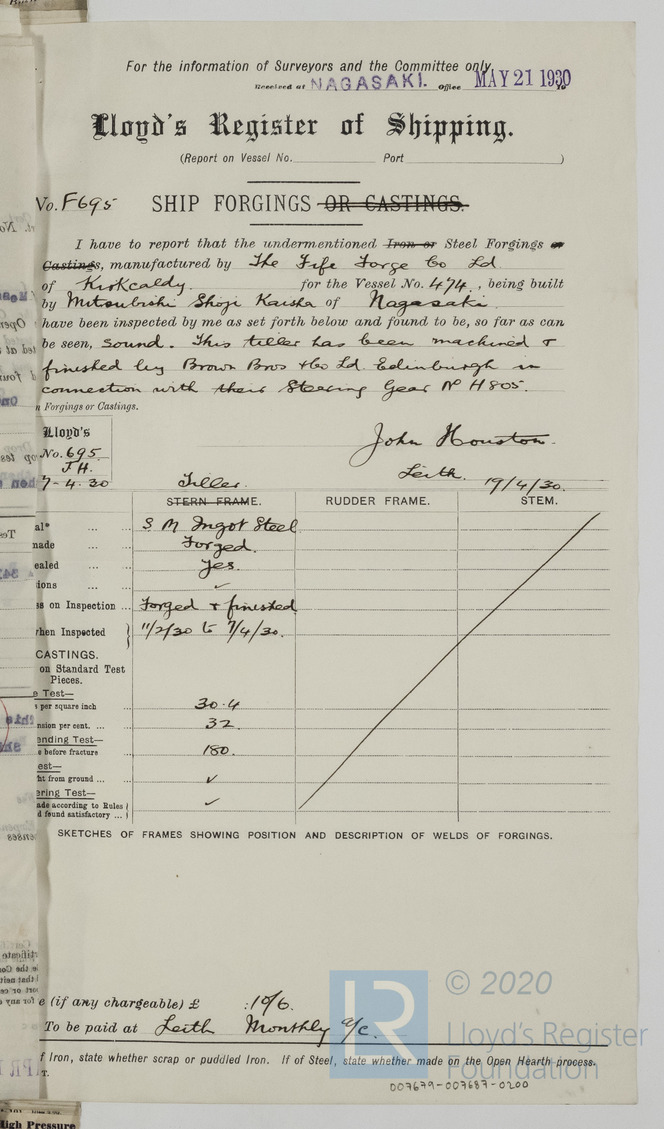 For the information of Surveyors and the Committee only.
Received at NAGASAKI. Office MAY 21 1930
Lloyd's Register of Shipping.
(Report on Vessel No. Port )
No. F695 SHIP FORGINGS OR CASTINGS.
I have to report that the undermentioned Iron or Steel Forgings or
Castings, manufactured by The Fife Forge Co Ld
of Kirkcaldy. for the Vessel No. 474, being built
by Mitsubishi Shoji Kaisha of Nagasaki
have been inspected by me as set forth below and found to be, so far as can
be seen, sound. This tiller has been machined &
finished by Brown Bros & Co Ld. Edinburgh in
connection with their Steering Gear No H805.
n Forgings or Castings.
Lloyd's
No. 695
J H.
7-4-30
John Houston.
Leith. 19/4/30.
Tiller.
STERN FRAME. RUDDER FRAME. STEM.
al* ... ... S M Ingot Steel
made ... ... Forged.
ealed ... ... Yes.
ions ... ... ✓
ss on Inspection ... Forged & finished
when Inspected } 11/2/30 to 7/4/30.
CASTINGS.
on Standard Test
Pieces.
e Test—
s per square inch ... 30.4
nsion per cent. ... ... 32.
ending Test—
e before fracture 180.
est—
ht from ground ... ... ✓
ering Test—
ade according to Rules }
d found satisfactory ... } ✓
SKETCHES OF FRAMES SHOWING POSITION AND DESCRIPTION OF WELDS OF FORGINGS.
e (if any chargeable) £ : 10/6.
To be paid at Leith Monthly a/c.
f Iron, state whether scrap or puddled Iron. If of Steel, state whether made on the Open Hearth process.
T.
© 2020
LR
Lloyd's Register
Foundation
007679-007687-0200
High Pressure